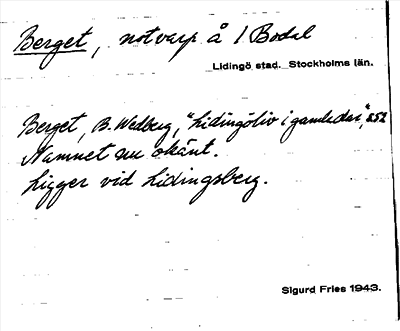 Berget, notvarp å 1 Bodal
Lidingö stad. Stockholms län.
Berget, B. Wedberg, "Lidingöliv i gamla dar", s. 52
Namnet nu okänt.
Ligger vid Lidingsberg.
Sigurd Fries 1943.